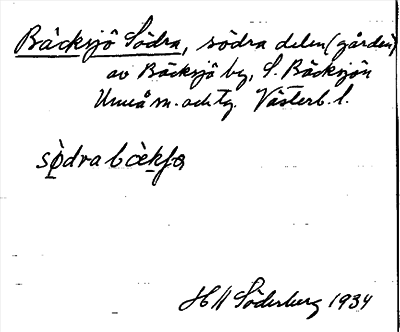 Bäcksjö Södra, södra delen (gården)
av Bäcksjö by, S. Bäcksjön
Umeå sn. och tg. Västerb. l.
södra bækſɷ
H Söderberg 1934